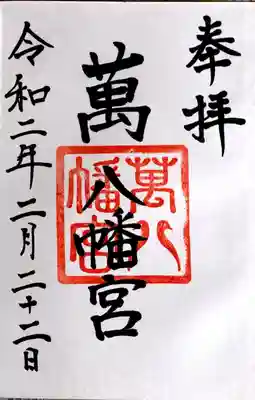 奉拝
萬八幡宮
萬八幡宮
令和二年二月二十二日